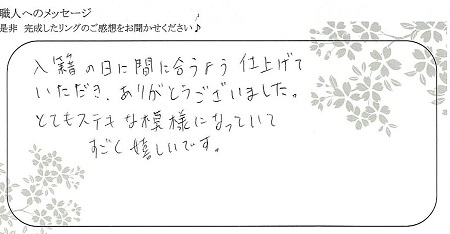 職人へのメッセージ
是非 完成したリングのご感想をお聞かせください♪
入籍の日に間に合うよう仕上げて
いただき、ありがとうございました。
とてもステキな模様になっていて
すごく嬉しいです。